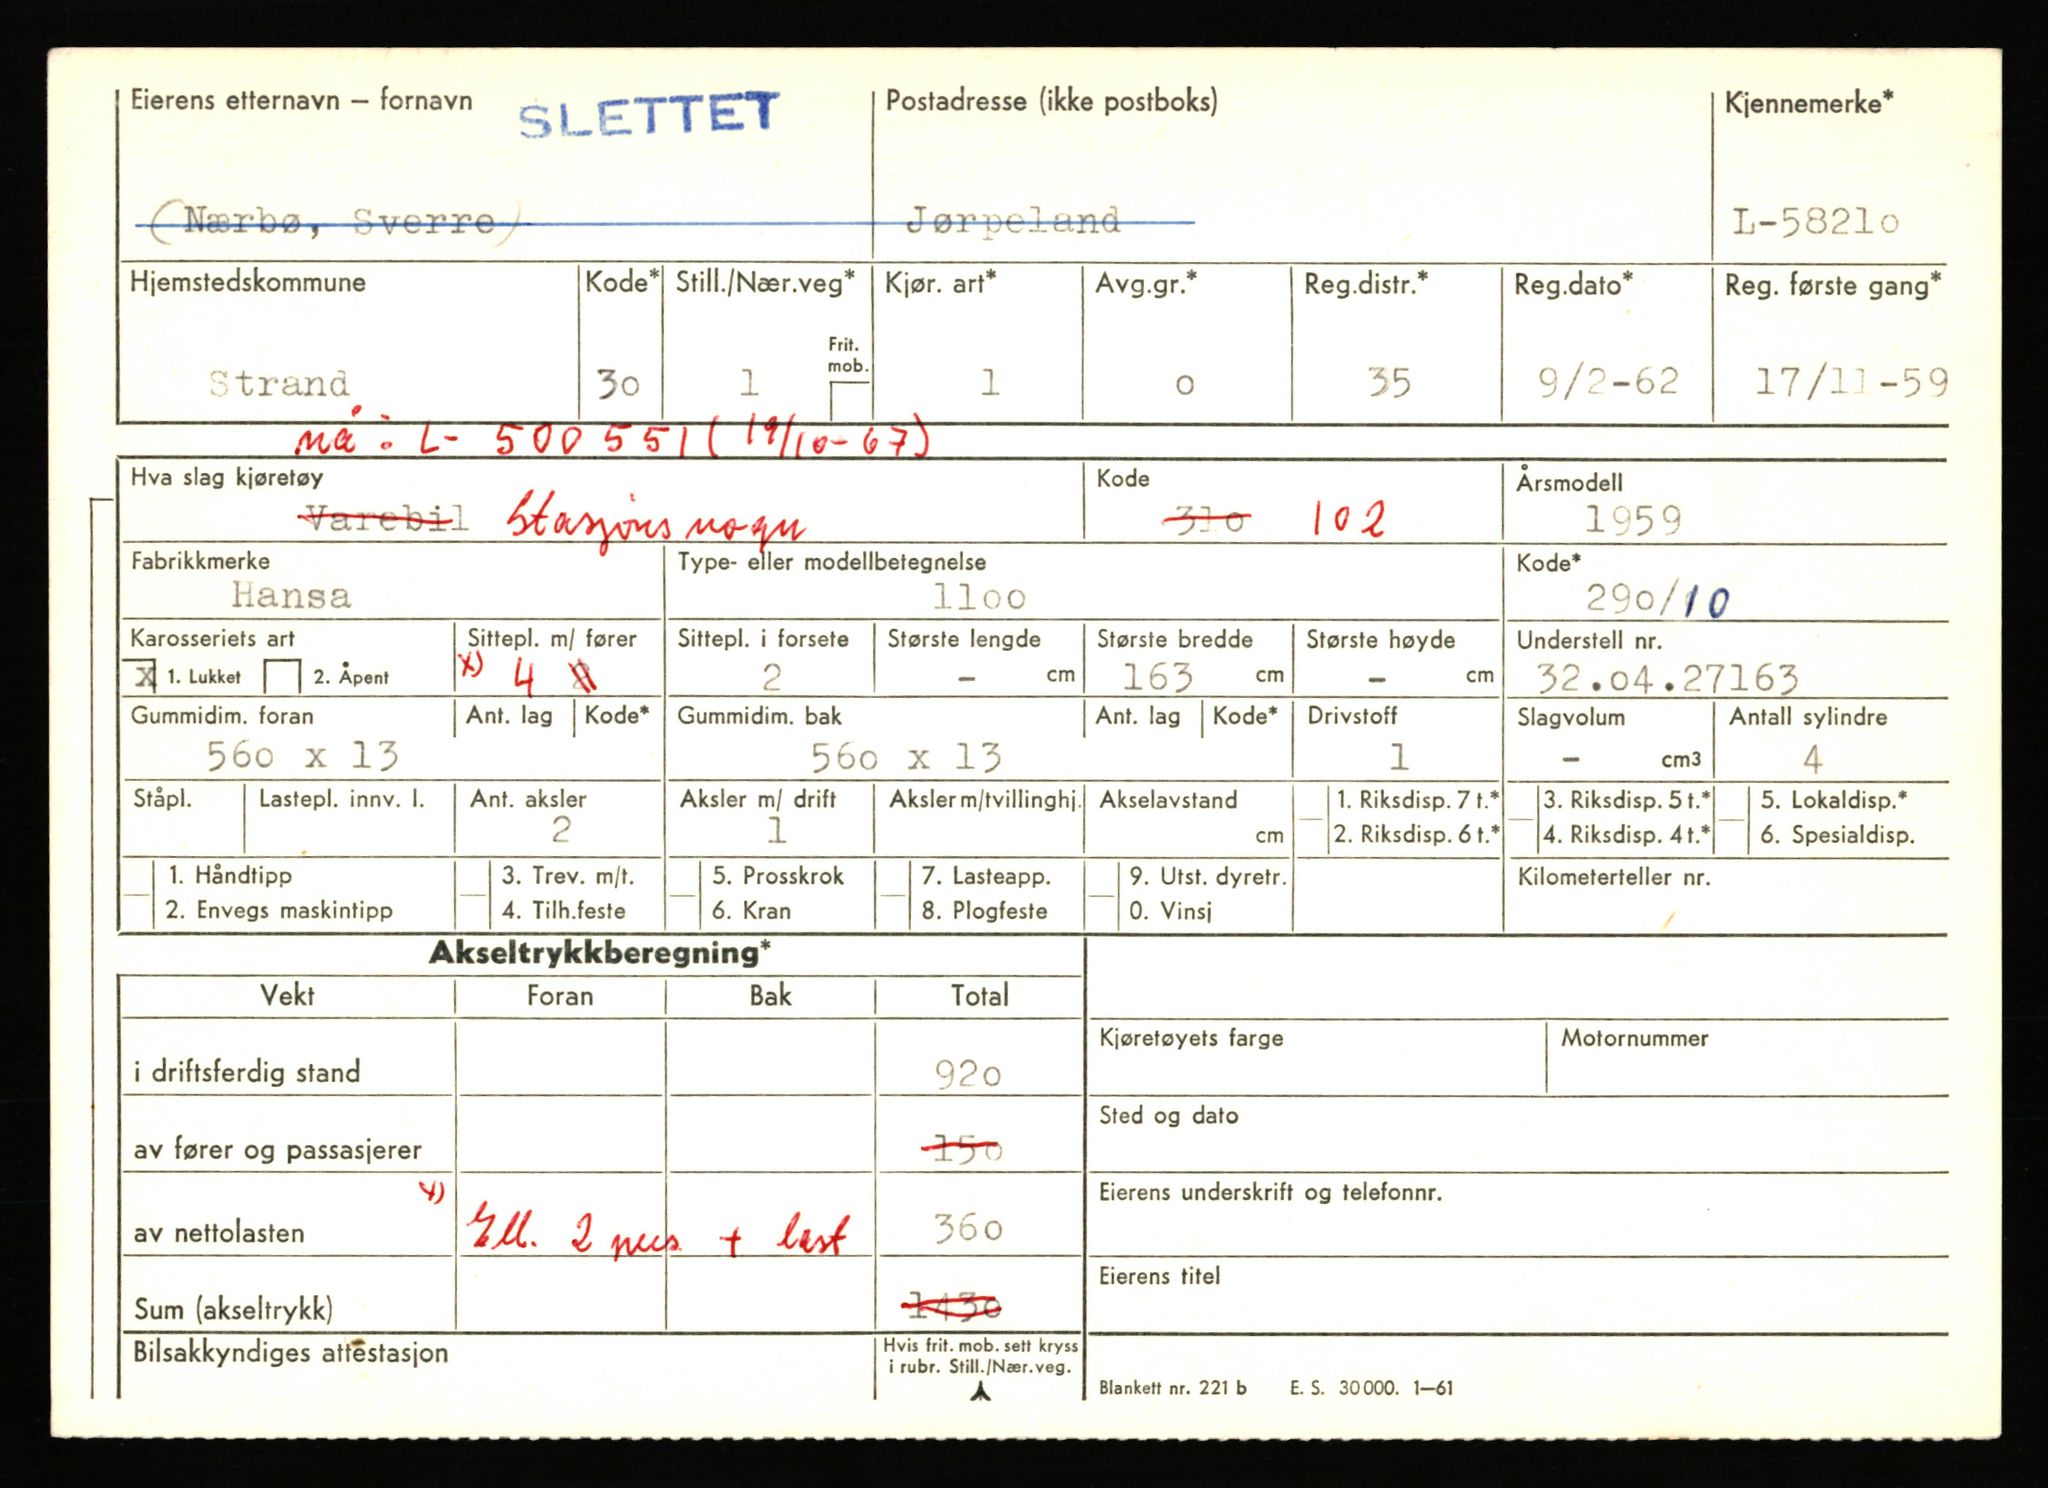 Eierens etternavn – fornavn SLETTET Postadresse (ikke postboks) Kjennemerke*
(Nærbø, Sverre) Jørpeland L-58210
Hjemstedskommune Kode* Still./Nær.veg* Kjør. art* Avg.gr.* Reg.distr.* Reg.dato* Reg. første gang*
Frit.
mob.
Strand 30 1 1 0 35 9/2-62 17/11-59
nå: L- 500551 (19/10-67)
Hva slag kjøretøy Kode Årsmodell
Varebil Stasjonsvogn 310 102 1959
Fabrikkmerke Type- eller modellbetegnelse Kode*
Hansa 1100 290/10
Karosseriets art Sittepl. m/ fører Sittepl. i forsete Største lengde Største bredde Største høyde Understell nr.
X 1. Lukket 2. Åpent x) 4 2 2 - cm 163 cm - cm 32.04.27163
Gummidim. foran Ant. lag Kode* Gummidim. bak Ant. lag Kode* Drivstoff Slagvolum Antall sylindre
560 x 13 560 x 13 1 - cm3 4
Ståpl. Lastepl. innv. l. Ant. aksler Aksler m/ drift Aksler m/tvillinghj. Akselavstand 1. Riksdisp. 7 t.* 3. Riksdisp. 5 t.* 5. Lokaldisp.*
2 1 cm 2. Riksdisp. 6 t.* 4. Riksdisp. 4 t.* 6. Spesialdisp.
1. Håndtipp 3. Trev. m/t. 5. Prosskrok 7. Lasteapp. 9. Utst. dyretr. Kilometerteller nr.
2. Envegs maskintipp 4. Tilh.feste 6. Kran 8. Plogfeste 0. Vinsj
Akseltrykkberegning*
Vekt Foran Bak Total
Kjøretøyets farge Motornummer
i driftsferdig stand 920
Sted og dato
av fører og passasjerer 150
x) Eierens underskrift og telefonnr.
av nettolasten Ell. 2 pers + last 360
Eierens titel
Sum (akseltrykk) 1430
Bilsakkyndiges attestasjon Hvis frit. mob. sett kryss
i rubr. Still./Nær.veg.
Blankett nr. 221 b E. S. 30000. 1–61